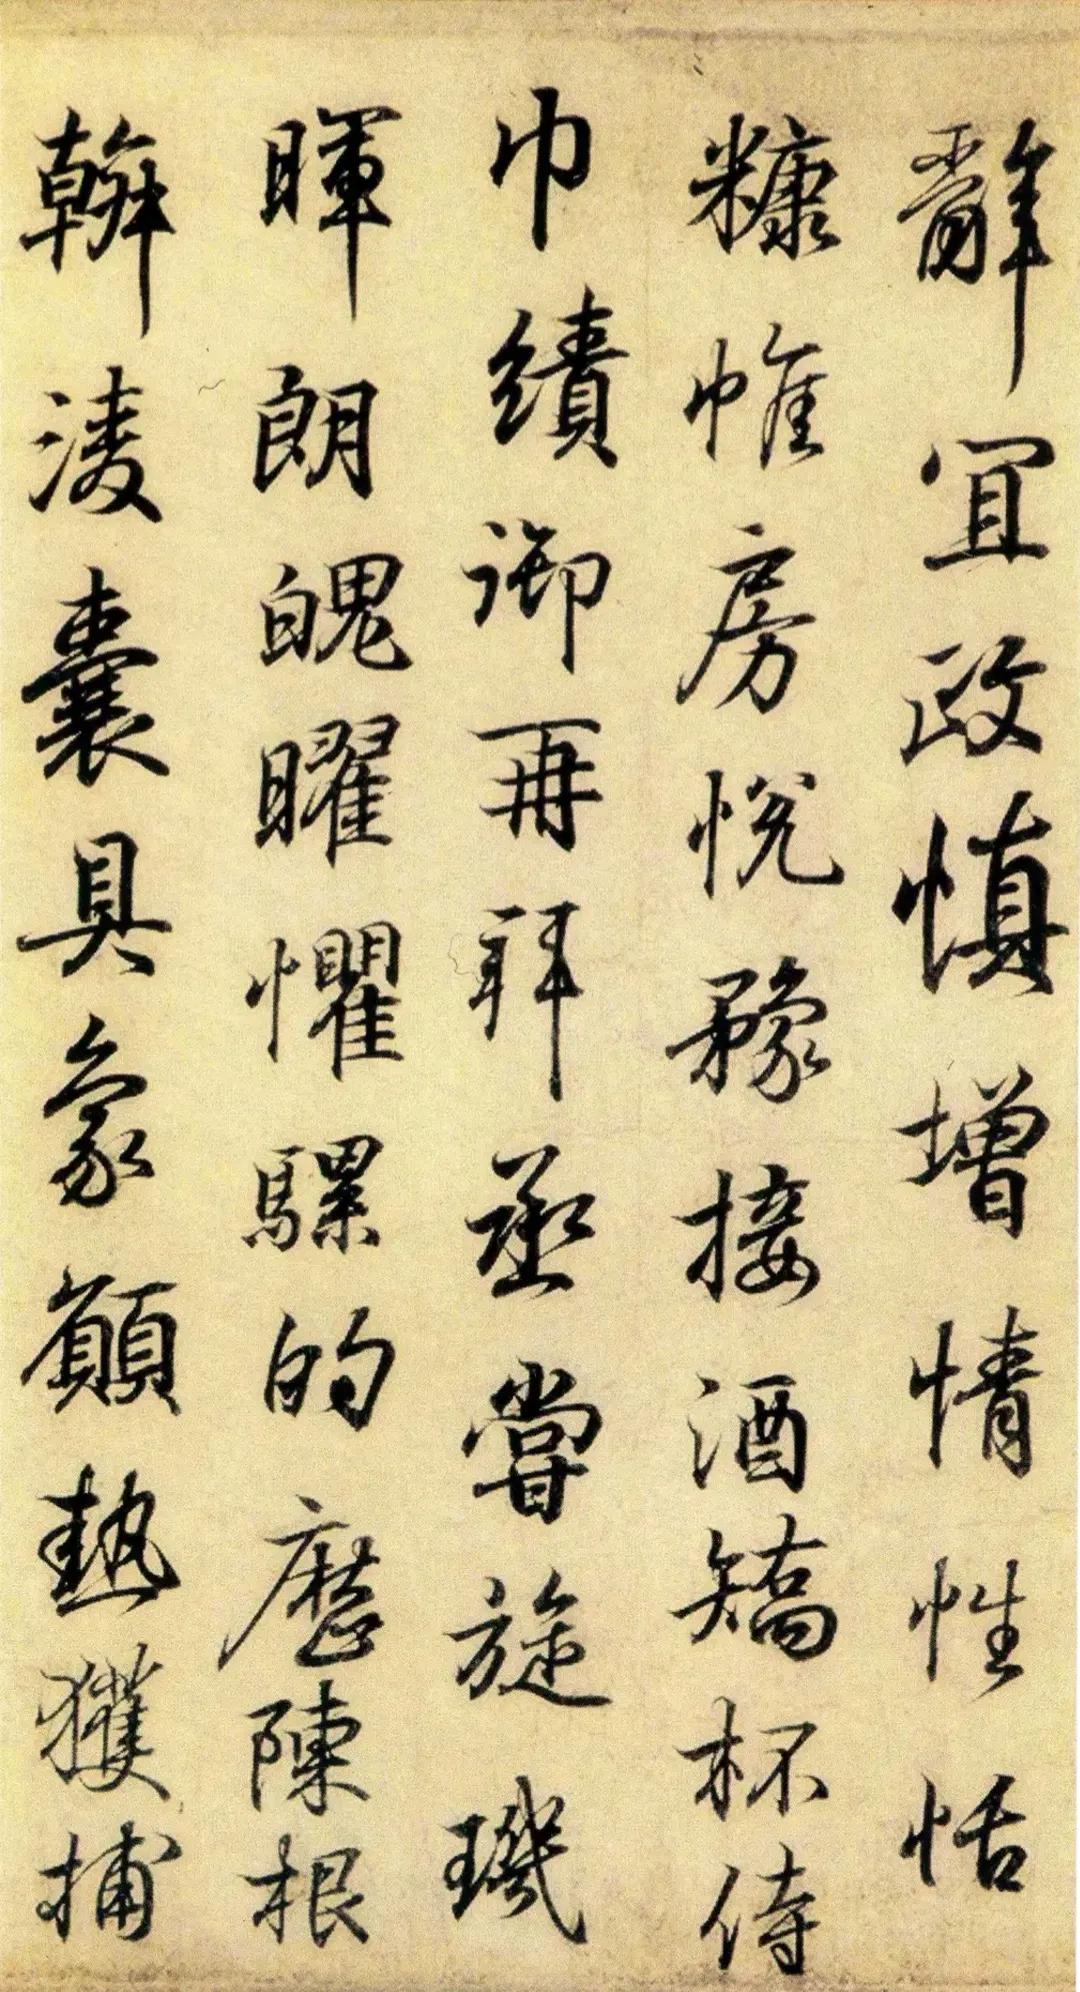 辭宜政慎增情性恬
糠帷房悅豫接酒矯杯侍
巾績御再拜烝嘗旋璣
暉朗魄曜懼騾的歷陳根
幹淩囊具象顧熱獲捕